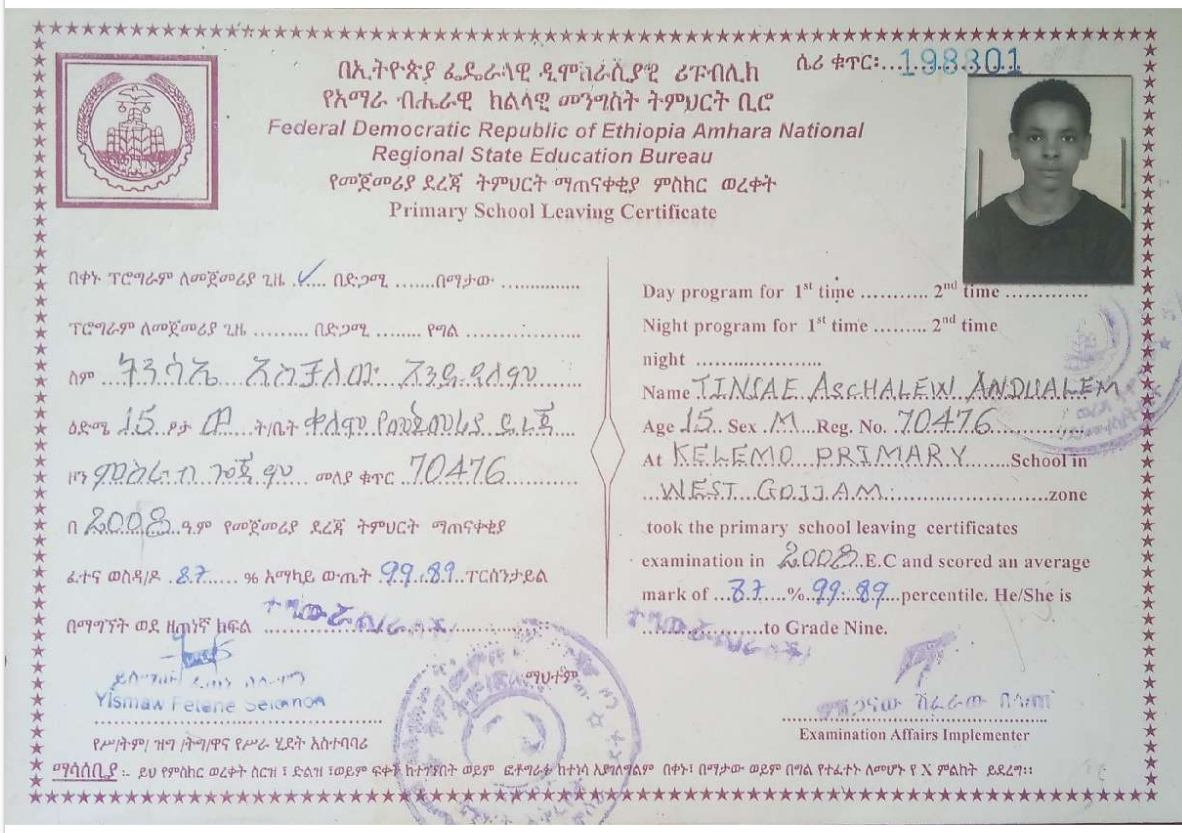 ሴሪ ቁጥር፡...198301
በኢትዮጵያ ፌዴራላዊ ዲሞክራሲያዊ ሪፑብሊክ
የአማራ ብሔራዊ ክልላዊ መንግስት ትምህርት ቢሮ
Federal Democratic Republic of Ethiopia Amhara National
Regional State Education Bureau
የመጀመሪያ ደረጃ ትምህርት ማጠናቀቂያ ምስክር ወረቀት
Primary School Leaving Certificate
በቀኑ ፕሮግራም ለመጀመሪያ ጊዜ .✓.... በድጋሚ .......በማታው ...............
ፕሮግራም ለመጀመሪያ ጊዜ ......... በድጋሚ ........ የግል ......................
ስም ...ትንሳኤ...አስቻለው...አንዷዓለም..........
ዕድሜ .15..ፆታ ወ....ት/ቤት ቀለሞ የመጀመሪያ ደረጃ....
ዞን ምዕራብ ጎጃም... መለያ ቁጥር .70476...........
በ 2008..ዓ.ም የመጀመሪያ ደረጃ ትምህርት ማጠናቀቂያ
ፈተና ወስዳ/ዶ .87...... % አማካይ ውጤት 99.89..ፐርሰንታይል
በማግኘት ወደ ዘጠነኛ ክፍል
Yismaw Felene Selomon
የሥ/ትም/ ዝግ /ትግ/ዋና የሥራ ሂደት አስተባባሪ
Day program for 1st time ........... 2nd time .............
Night program for 1st time ......... 2nd time
night ....................
Name TINSAE ASCHALEW ANDUALEM
Age 15.. Sex .M...Reg. No. 70476...............
At KELEMO PRIMARY.......School in
...WEST...GOJJAM.........................zone
took the primary school leaving certificates
examination in 2008..E.C and scored an average
mark of ...87.....%.99..89...percentile. He/She is
....................to Grade Nine.
ማህተም
Examination Affairs Implementer
ማሳሰቢያ ፡- ይህ የምስክር ወረቀት ስርዝ ፣ ድልዝ ፣ወይም ፍቀት ከተገኘበት ወይም ፎቶግራፉ ከተነሳ አያገለግልም በቀኑ፣ በማታው ወይም በግል የተፈተኑ ለመሆኑ የ X ምልክት ይደረግ፡፡